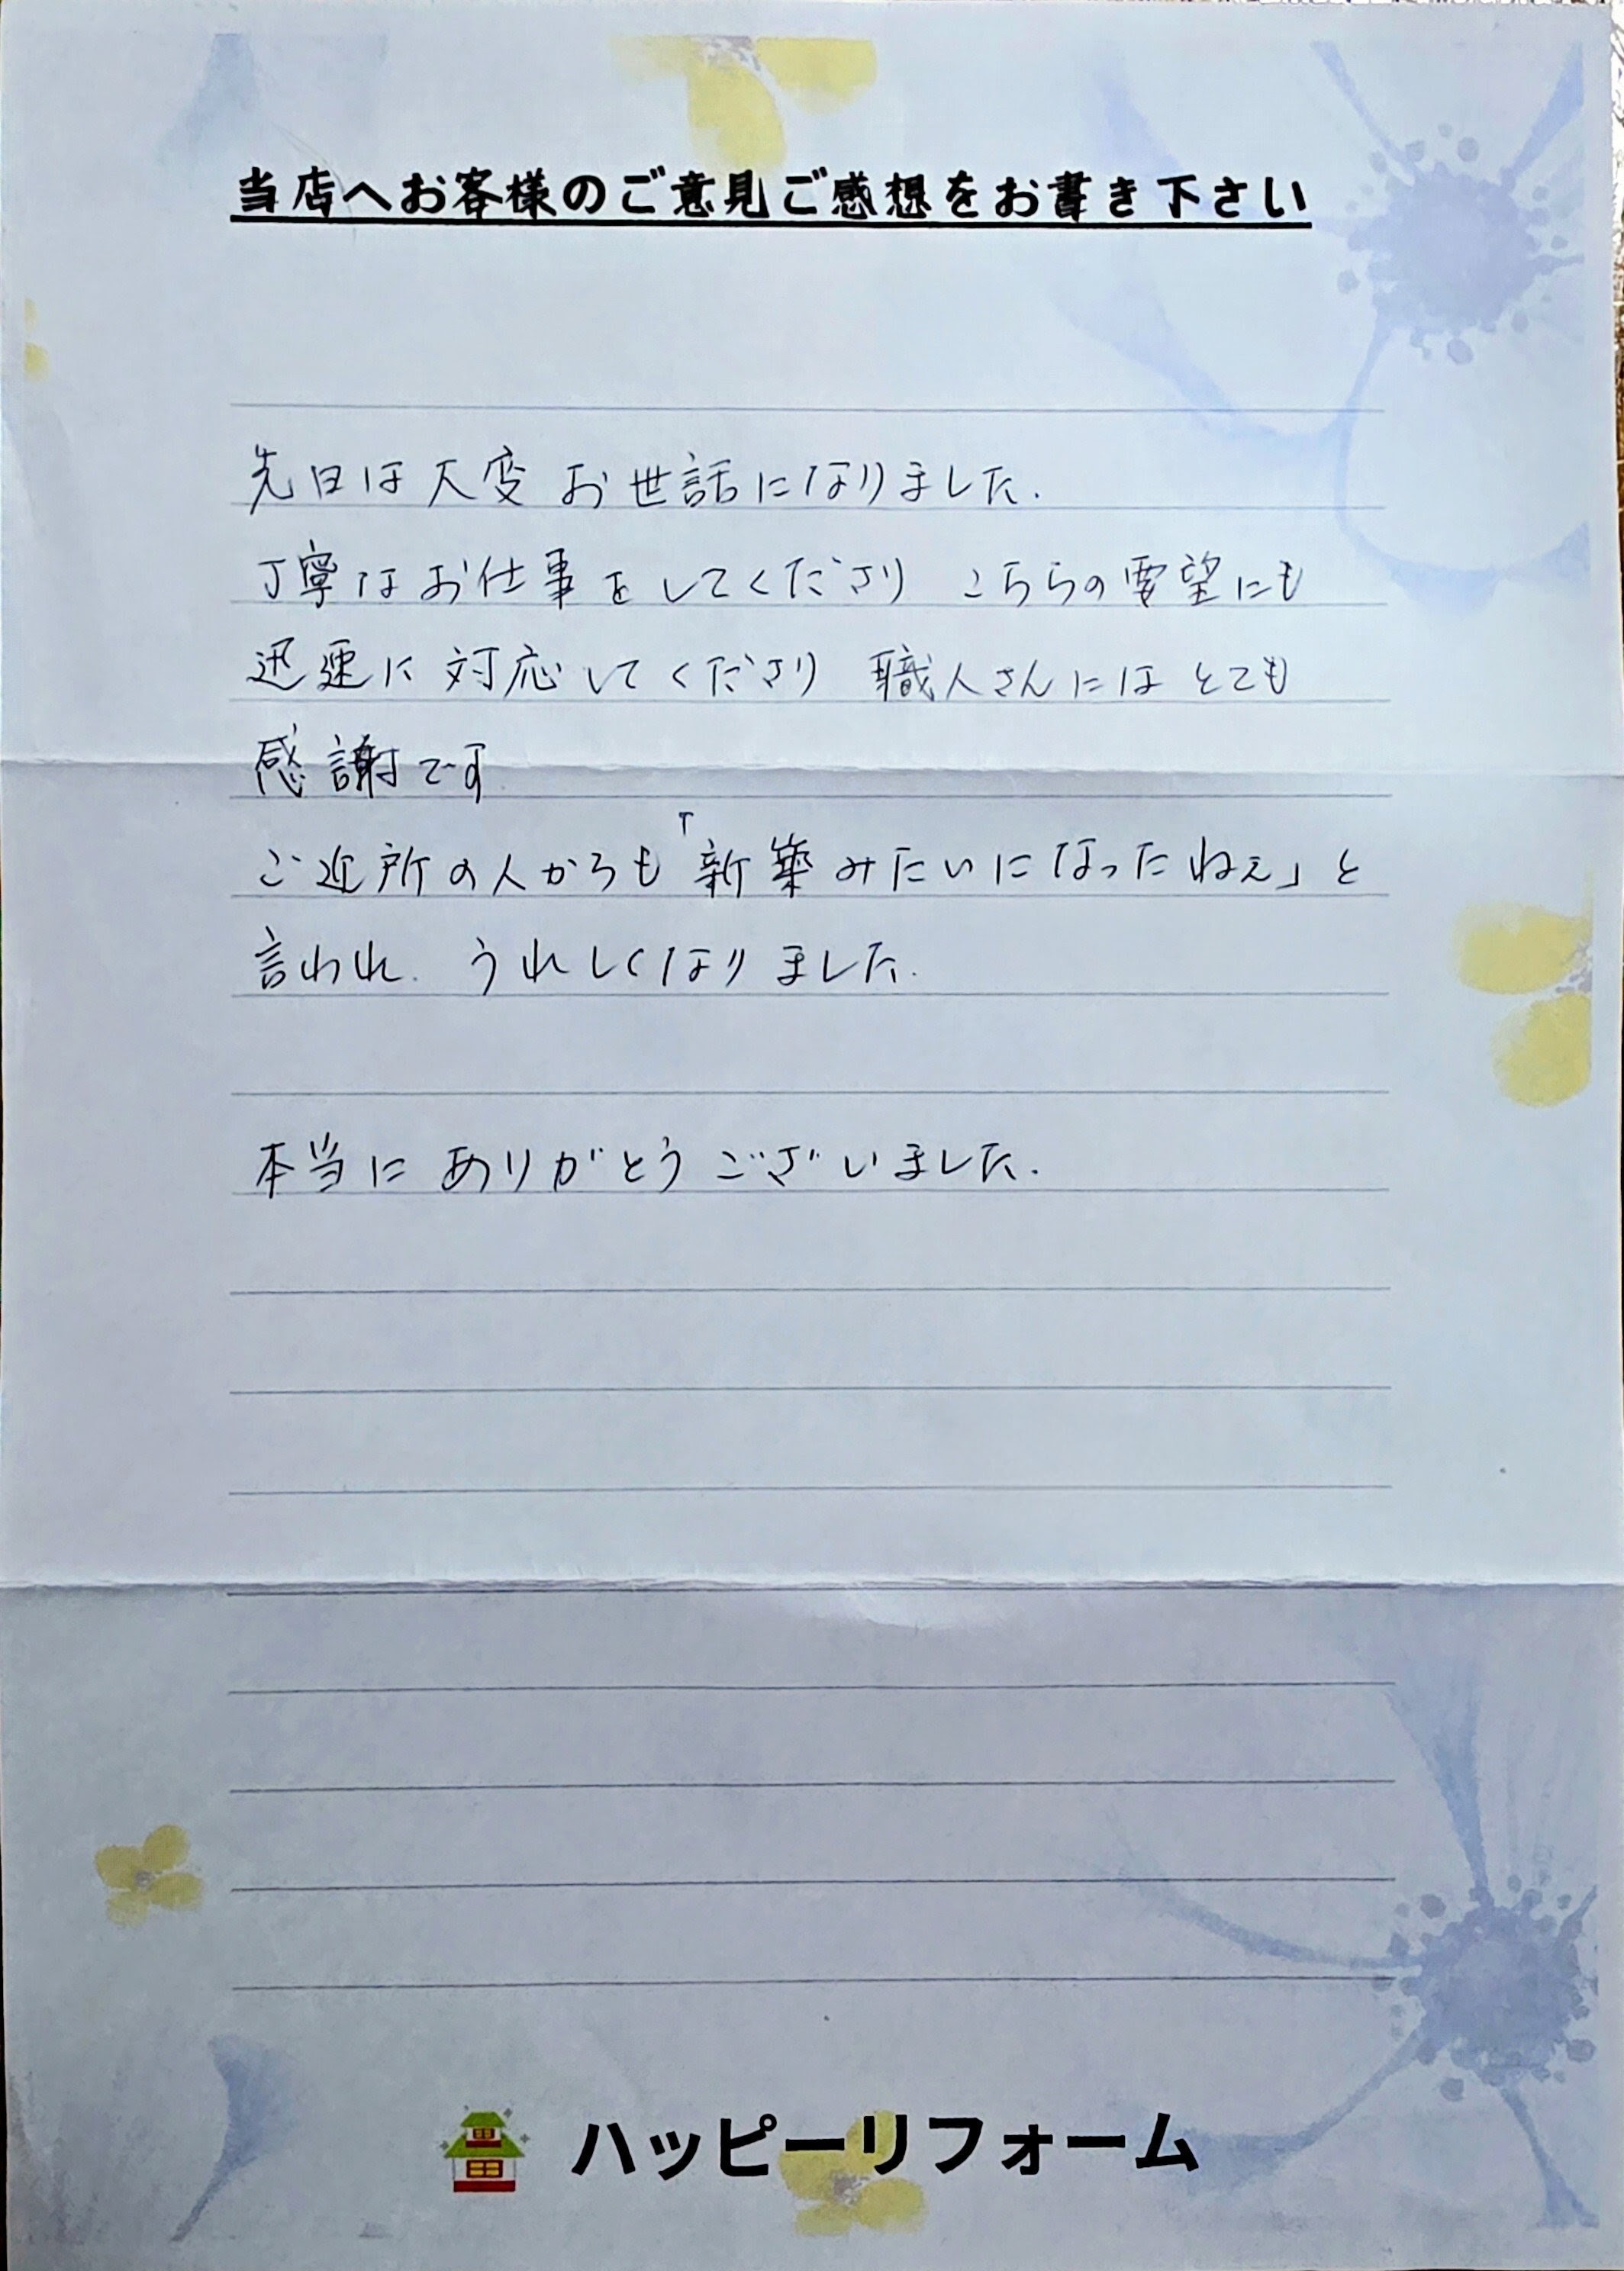 当店へお客様のご意見ご感想をお書き下さい
先日は大変お世話になりました.
丁寧なお仕事をしてくださり こちらの要望にも
迅速に対応してくださり 職人さんにはとても
感謝です.
ご近所の人からも「新築みたいになったねぇ」と
言われ. うれしくなりました.
本当にありがとうございました.
ハッピーリフォーム